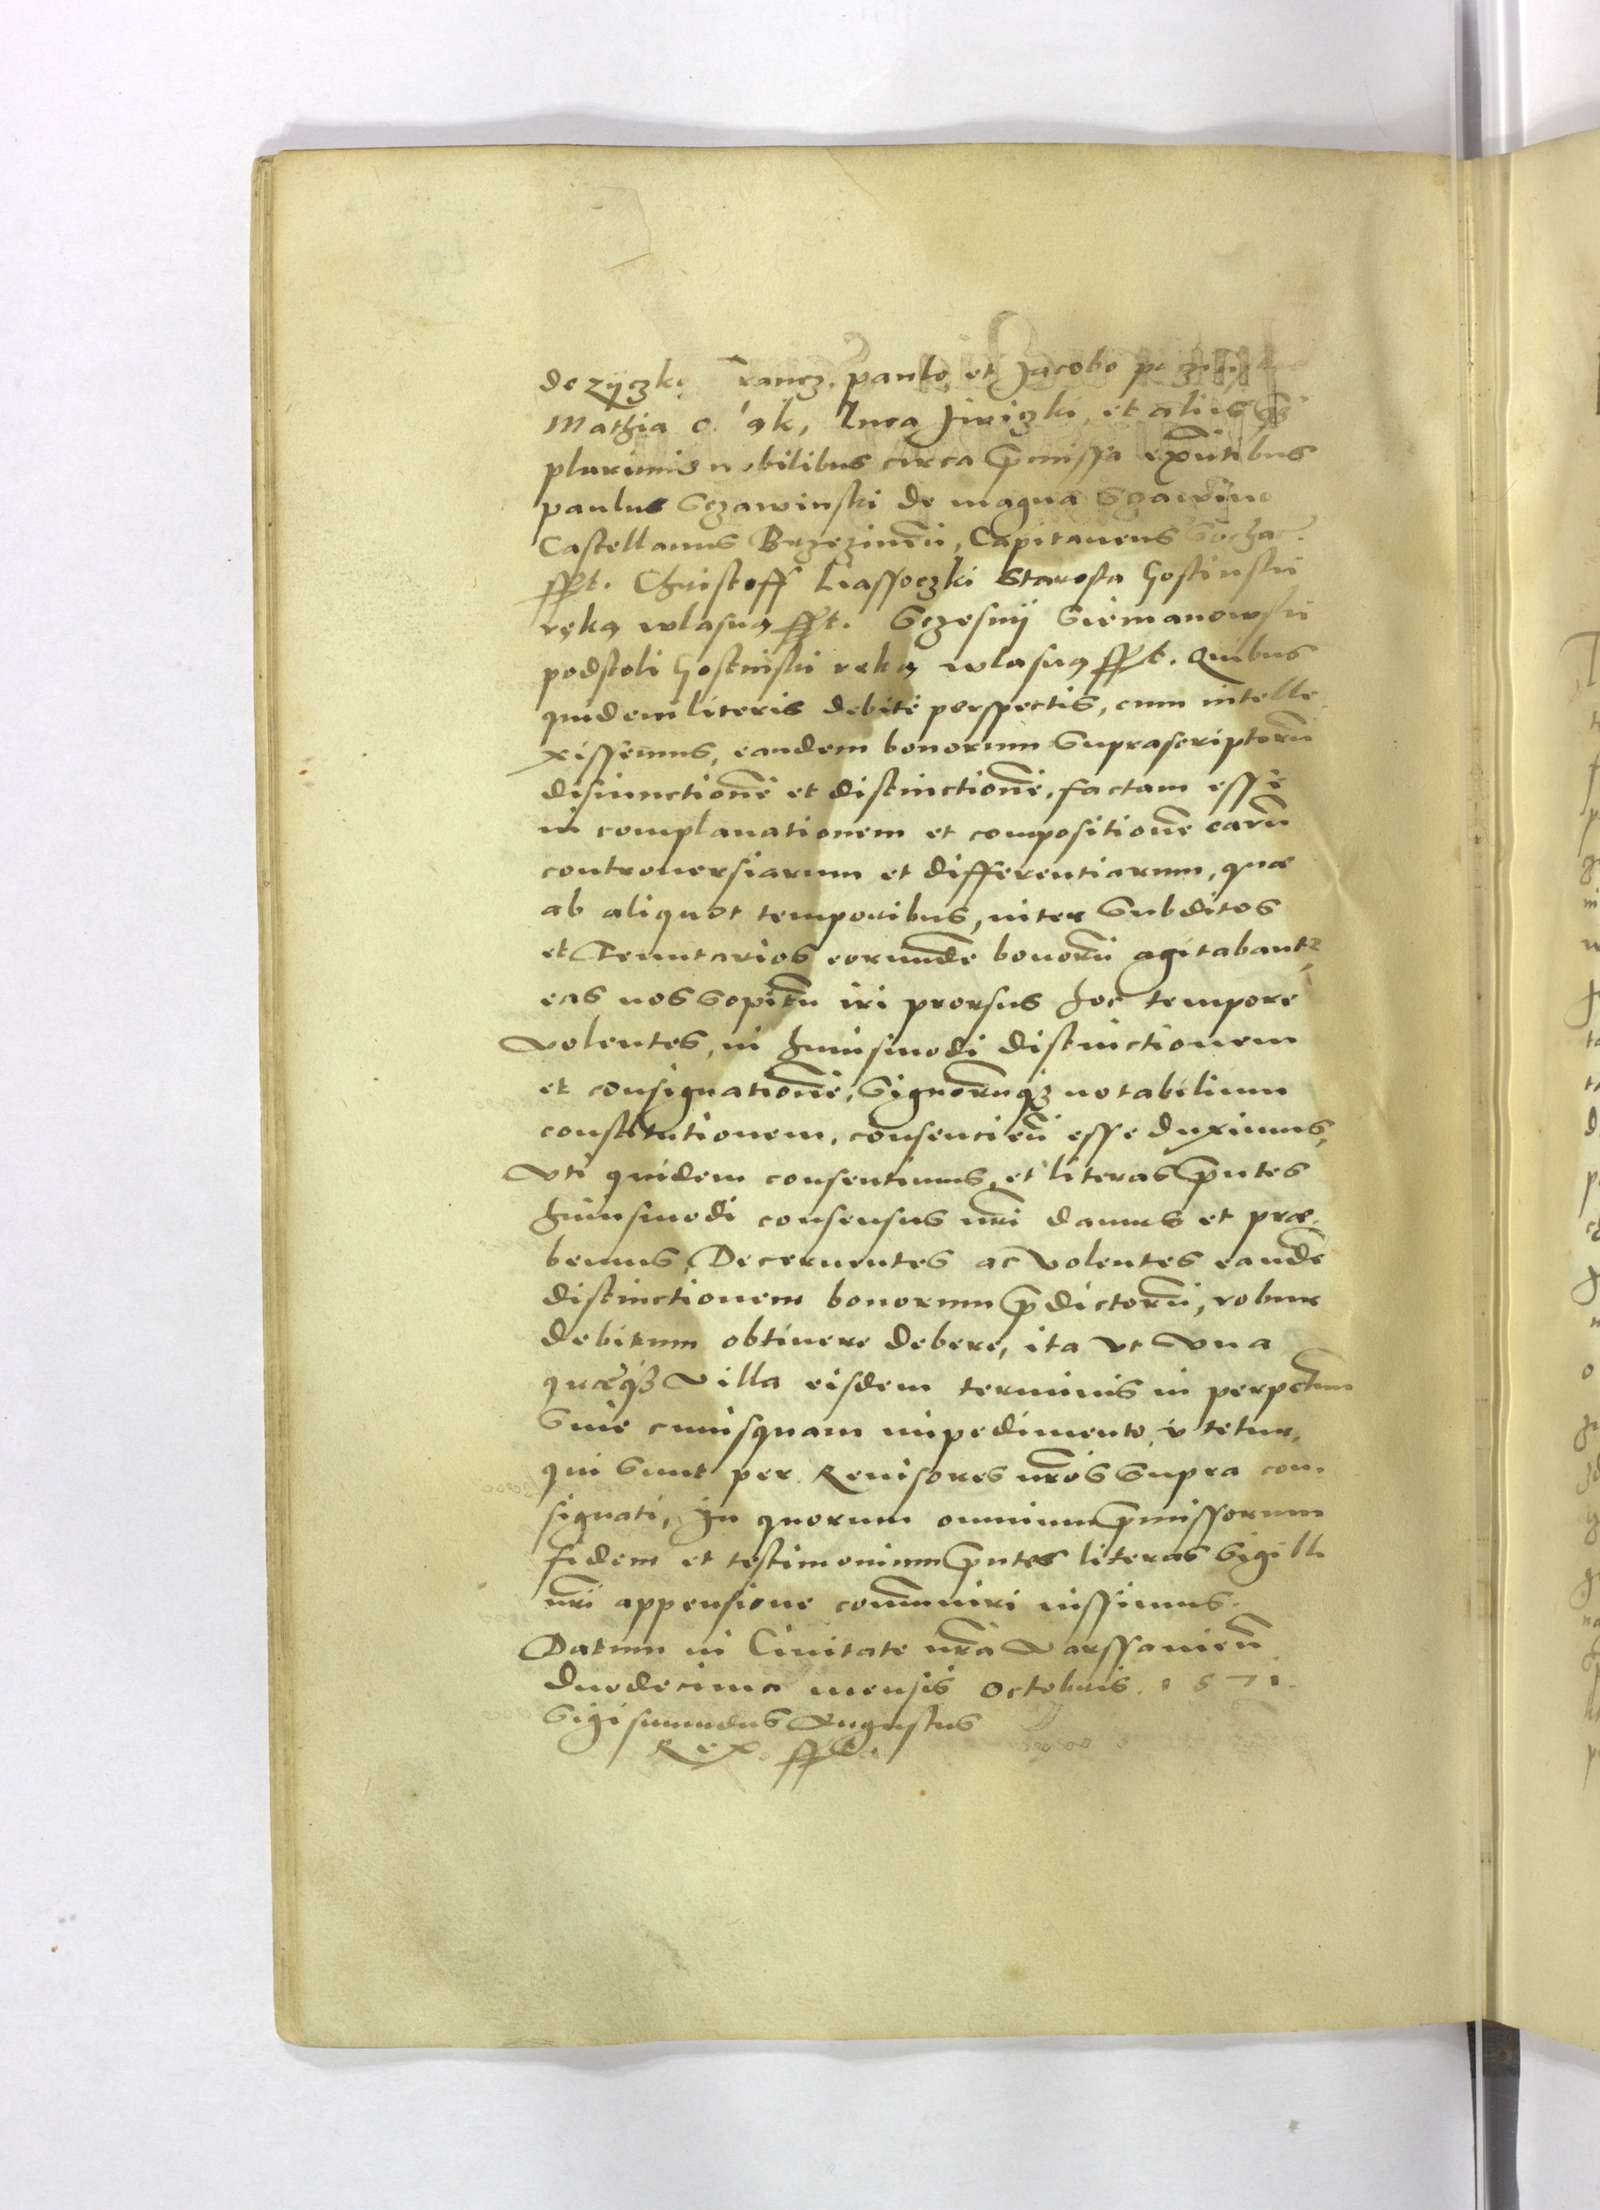 de zyczk rancz. paulo et Jacobo
Mathia Luca Jirizki, et aliis
plurimis nobilibus circa p̄missa exn̄tibus
paulus Sczawinski de magna Sczawino
Castellanus Brzezinēn, Capitaneus Sochac.
sst. Christoff Liassoczki Starosta Gostinski
ręką wlasną sst. Sczesnÿ Siemanowski
podstoli Gostinski ręką wlasną sst. Quibus
quidem literis debite perspectis, cum intelle-
xissemus, eandem bonorum suprascriptorū
disiunctionē et distinctionē, factam esse
in complanationem et compositionē earū
controuersiarum et differentiarum, quæ
ab aliquot temporibus, inter subditos
et Tenutarios eorundē bonorū agitabant,
eas nos sopitū iri prorsus hoc tempore
volentes, in huiusmodi distinctionem
et consignationē, signorūqȝ notabilium
constitutionem, consenciēn esse duximus,
Vti quidem consentimus, et literas p̄ntes
huiusmodi consensus nr̄i damus et præ-
bemus, Decernentes ac volentes eandē
distinctionem bonorum p̄dictorū, robur
debitum obtinere debere, ita vt vna
quæqȝ villa eisdem terminis in perpetuum
sine cuiusquam impedimento vtetur,
qui sunt per Reuisores nr̄os supra con-
signati, In quorum omnium p̄missorum
fidem et testimonium p̄ntes literas sigilli
nr̄i appensione com̄uniri iussimus.
Datum in Ciuitate nr̄a Varssauiēn
duodecima mensis Octobris. 1571.
Sigismundus Augustus
Rex sst.